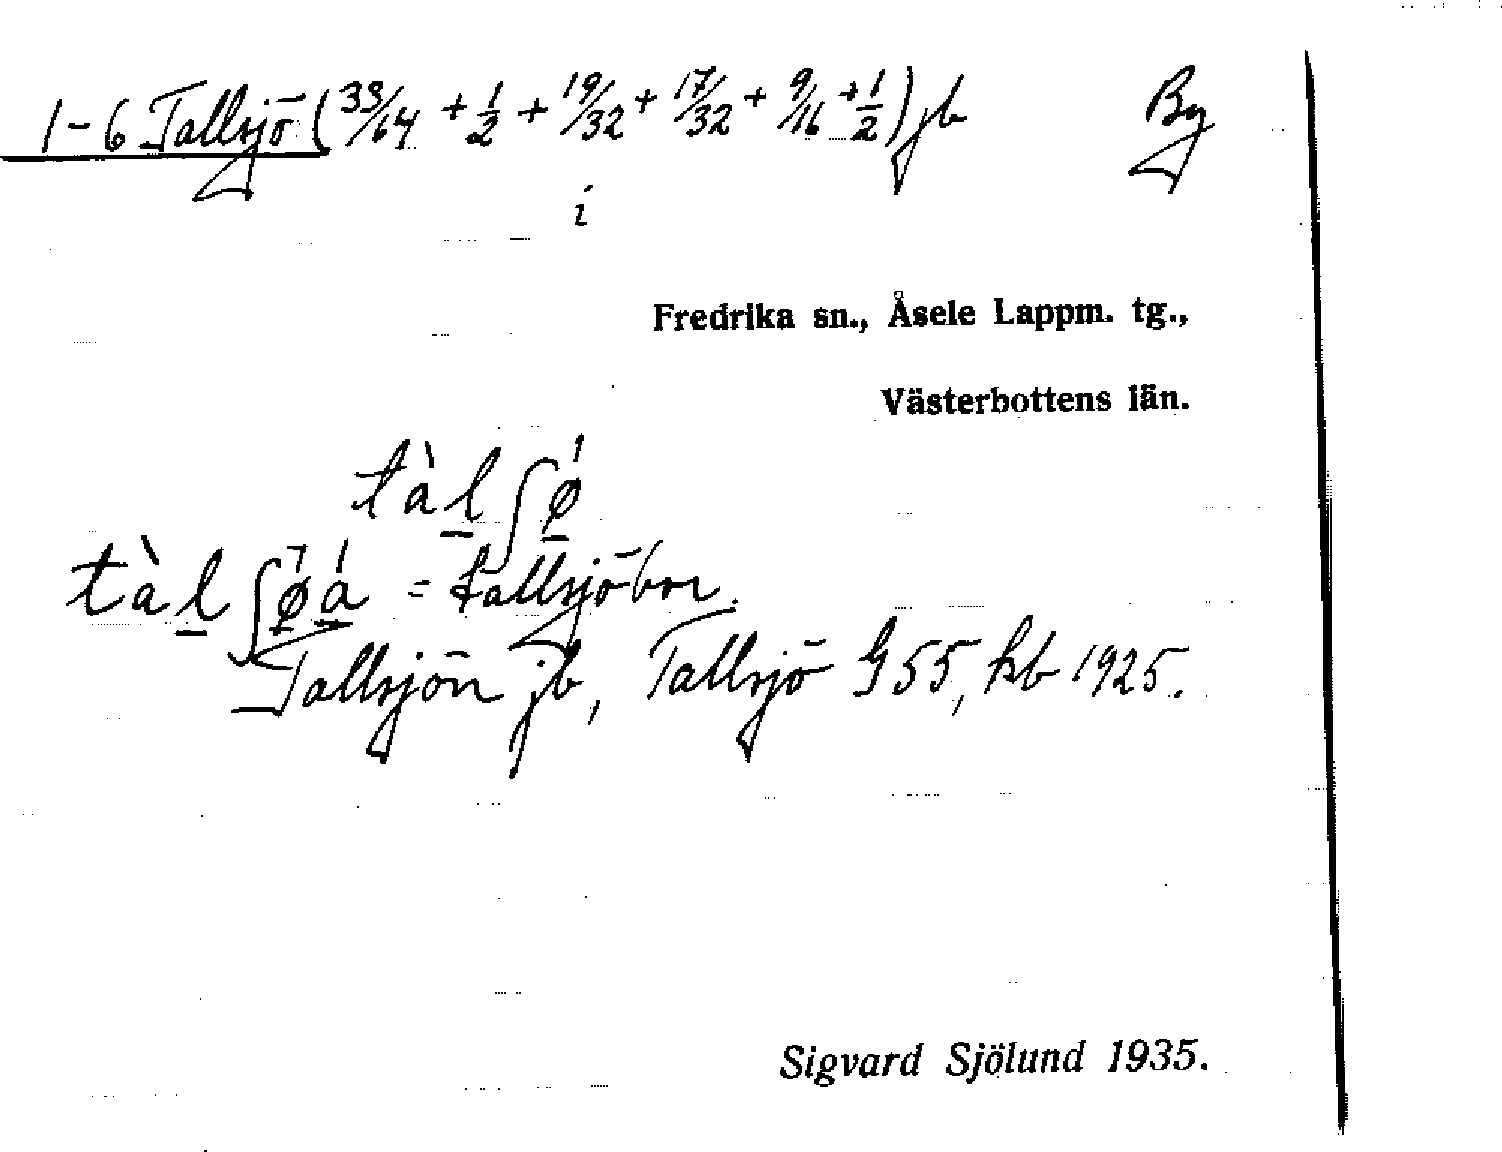 1-6 Tallsjö (33/64 + 1/2 + 19/32 + 17/32 + 9/16 + 1/2) jb By
i
Fredrika sn., Åsele Lappm. tg.,
Västerbottens län.
tàl̲ʃǿ̲
tàl̲ʃø̲̀á̲ = tallsjöbor.
Tallsjön jb, Tallsjö G55, kb 1925.
Sigvard Sjölund 1935.